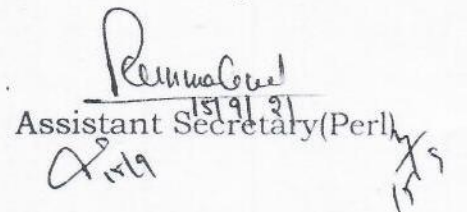 15/9/21
Assistant Secretary(Perl)
15/9
15/9